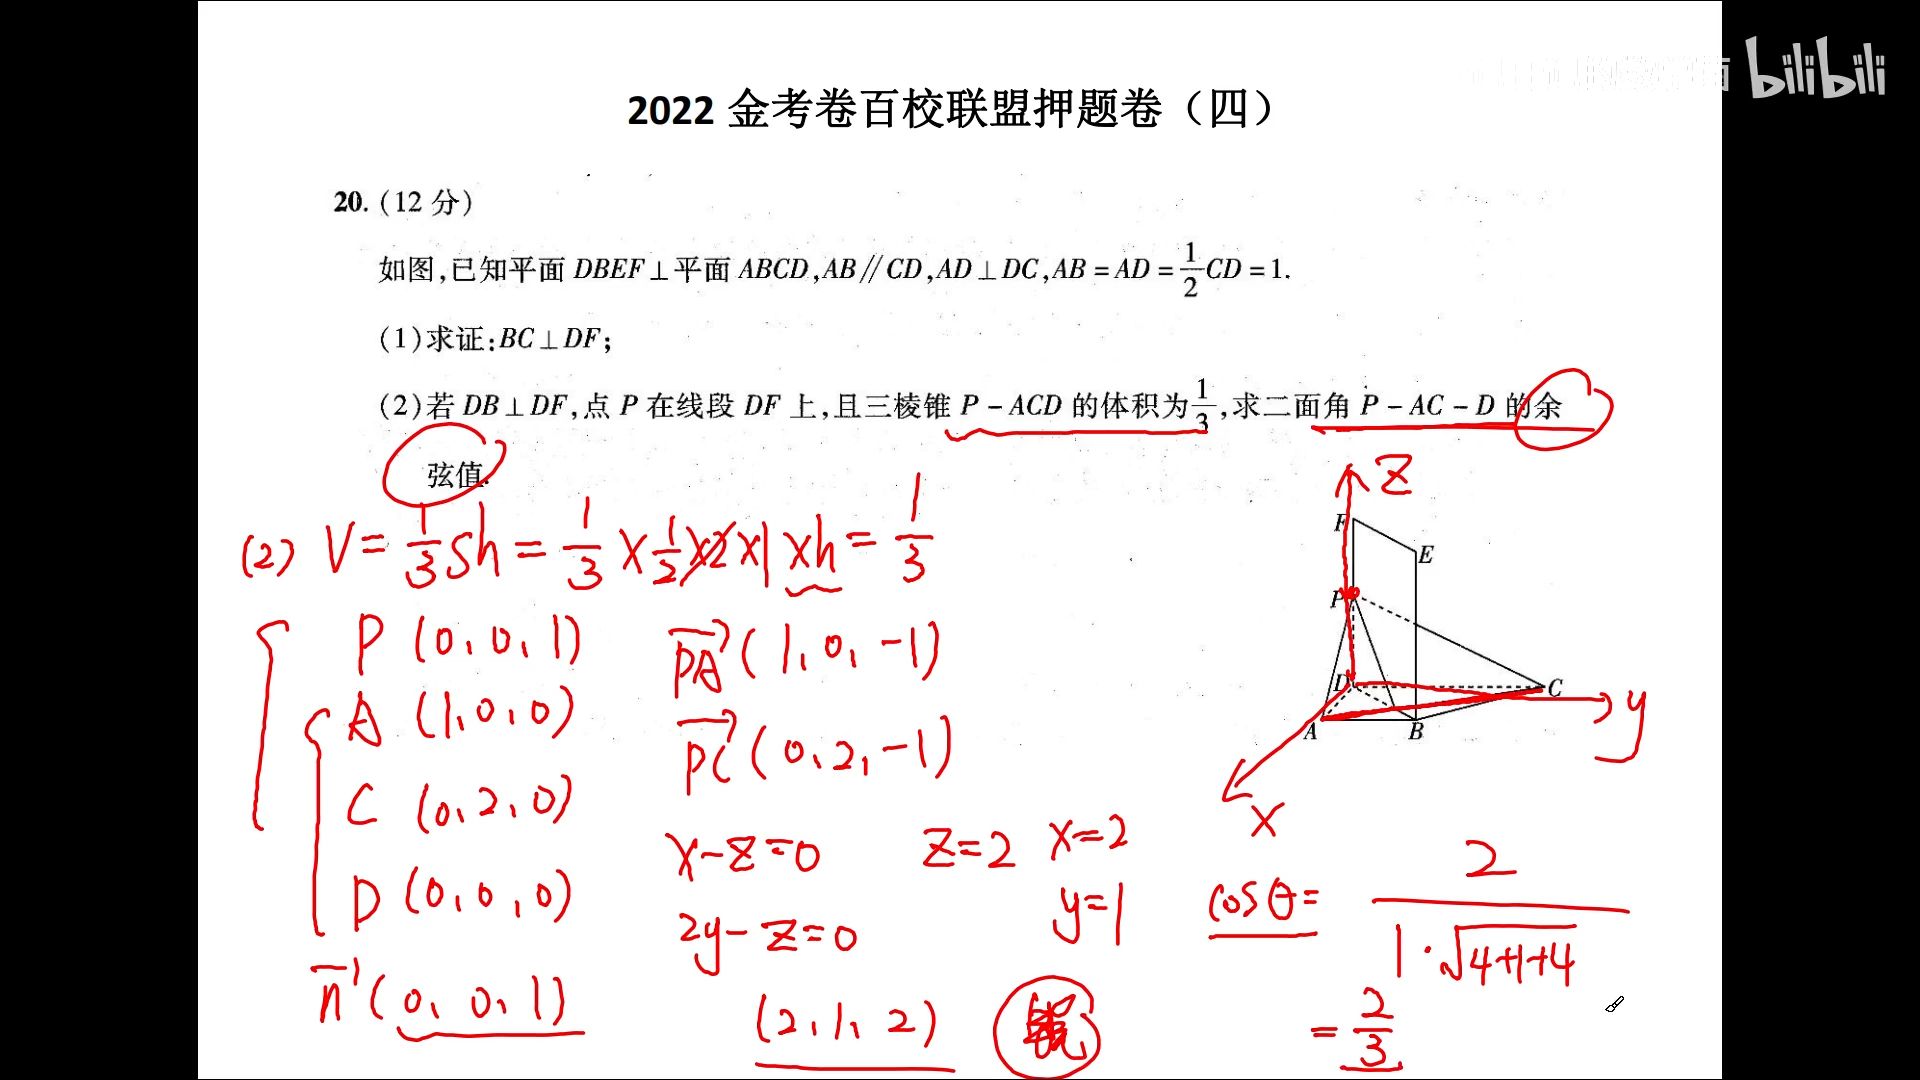 bilibili
2022 金考卷百校联盟押题卷（四）
20. (12 分)
如图,已知平面 DBEF⊥平面 ABCD,AB∥CD,AD⊥DC,AB=AD=1/2CD=1.
(1)求证:BC⊥DF;
(2)若 DB⊥DF,点 P 在线段 DF 上,且三棱锥 P-ACD 的体积为1/3,求二面角 P-AC-D 的余
弦值.
(2) V=1/3Sh=1/3×1/2×2×1×h=1/3
P (0,0,1)
A (1,0,0)
C (0,2,0)
D (0,0,0)
n (0,0,1)
PA (1,0,-1)
PC (0,2,-1)
x-z=0
2y-z=0
z=2 x=2
y=1
(2,1,2)
z
F
E
P
D
C
y
A
B
x
cosθ=2/(1·√4+1+4)
=2/3